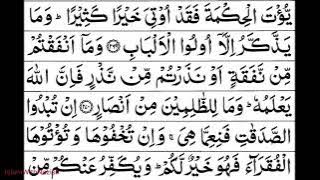 يُّؤْتَ الْحِكْمَةَ فَقَدْ اُوْتِيَ خَيْرًا كَثِيْرًا ؕ وَمَا
يَذَّكَّرُ اِلَّاۤ اُولُوا الْاَلْبَابِ ﴿۲۶۹﴾ وَمَاۤ اَنْفَقْتُمْ
مِّنْ نَّفَقَةٍ اَوْ نَذَرْتُمْ مِّنْ نَّذْرٍ فَاِنَّ اللّٰهَ
يَعْلَمُهٗ ؕ وَمَا لِلظّٰلِمِيْنَ مِنْ اَنْصَارٍ ﴿۲۷۰﴾ اِنْ تُبْدُوا
الصَّدَقٰتِ فَنِعِمَّا هِيَ ۚ وَاِنْ تُخْفُوْهَا وَتُؤْتُوْهَا
الْفُقَرَآءَ فَهُوَ خَيْرٌ لَّكُمْ ؕ وَيُكَفِّرُ عَنْكُمْ مِّنْ